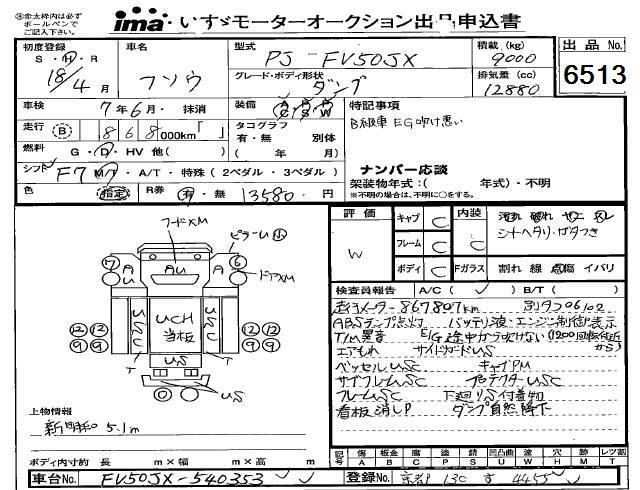 ※赤太枠内は必ず
ボールペンで
ご記入下さい。
ima いすゞモーターオークション出品申込書
初度登録 S・H・R 18/4月
車名 フソウ
型式 PJ-FV50JX
グレード・ボディ形状 ダンプ
積載(kg) 9000
排気量(cc) 12880
出品No. 6513
車検 7年6月・抹消
装備 A・P・P C・S・W
特記事項
B級車 EG吹け悪い
走行 (B) 868000km「 」
タコグラフ 有・無 別体
燃料 G・D・HV 他( ) ( 年 月)
ナンバー応談
シフト F7 M/T・A/T・特殊(2ペダル・3ペダル)
架装物年式:( 年式)・不明
※不明の場合は、不明に○をする。
色 (指定) R券 有・無 13580円
評価 W
キャブ C 内装 C
汚れ 破れ ヤニ スレ
シートヘタリ・ガタつき
フレーム C
ボディ C Fガラス 割れ 線 点傷 イバリ
フードXM
ピラーU(小)
ドアXM
7 A U AU A U 6
UCH
当板
12 12 12 12
9 9 9 9
T US T
US
検査員報告 A/C( ✓ ) B/T( )
走行メーター 867807km 別タコ06102
ABSランプ点灯 バッテリ液・エンジン制御表示
T/M異音 E/G途中から吹けない(1200回転付近から)
エアもれ サイドガードUS
ベッセルUSC キャブPM
サブフレームSC プロテクターUSC
フレームSC 下廻りS付着物
看板消しP ダンプ自然降下
上物情報
新明和 5.1m
ボディ内寸約 長 m×幅 m×高 m
記号 傷 A 板金 B 腐 C 塗 P 錆 S 凹凸曲 U 波 W 穴 H 目 M 不具合 T レツ割
車台No. FV50JX-540353
登録No. 京都 130 す 4455